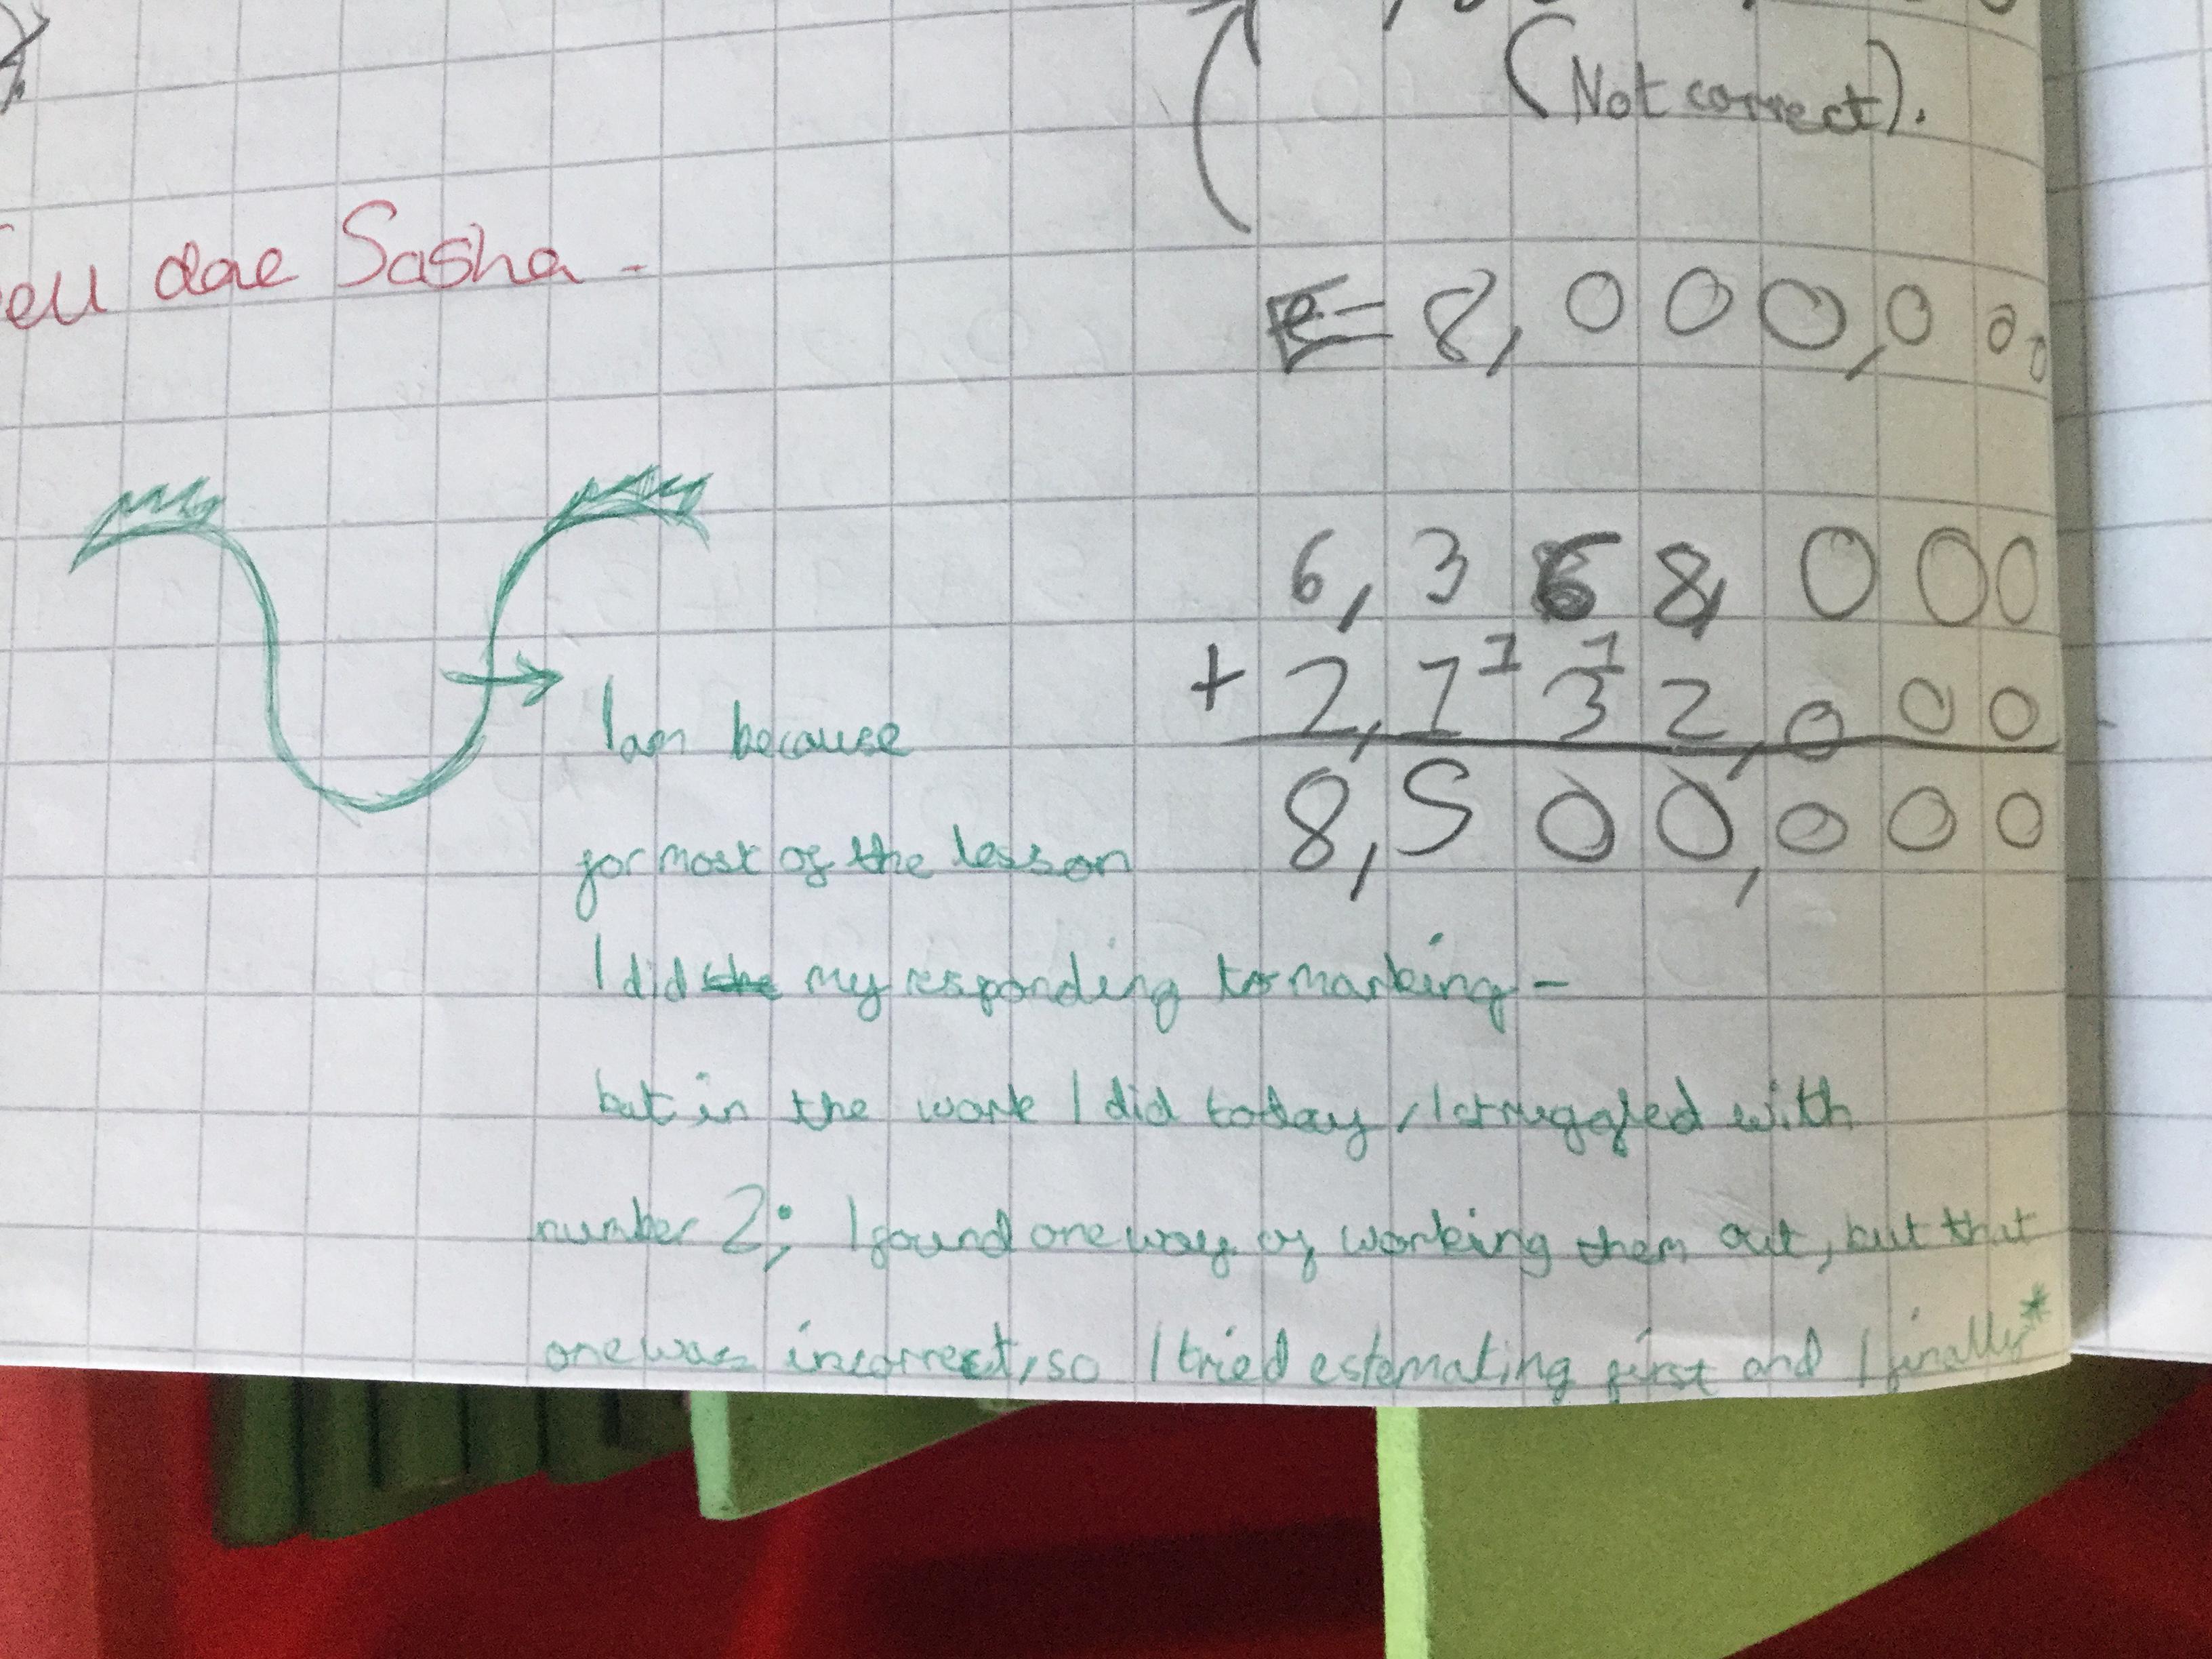 (Not correct).
Well done Sasha -
e= 8,000,000
6,368,000
+ 2,132,000
1 1
8,500,000
I am because
for most of the lesson
I did my responding to marking -
but in the work I did today, I struggled with
number 2; I found one way of working them out, but that
one was incorrect, so I tried estemating first and I finally*